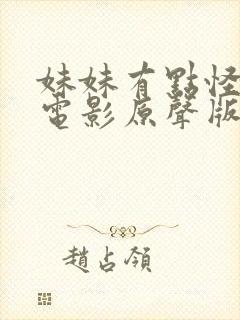 妹妹有點怪
電影原聲版
趙占領